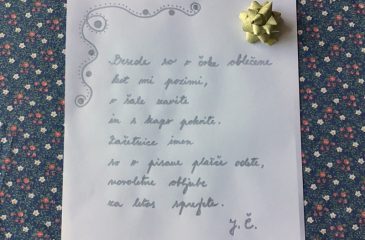 Besede so v šale oblečene
kot mi pozimi,
v šale zavite
in s kapo pokrite.
Začetnice imen
so v pisane plašče odete,
novoletne obljube
za letos sprejete.
J. Č.